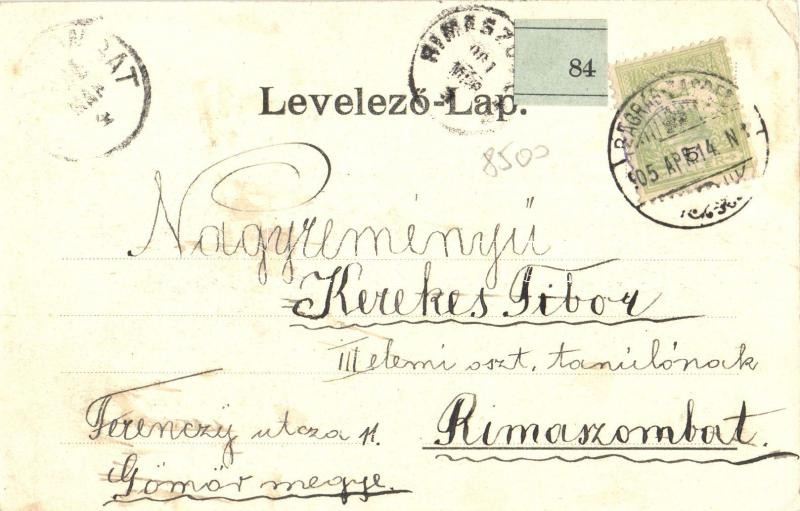 RIMASZO
84
Levelező-Lap.
ZÁGRÁB ZAGREB
905 APR 14 N
8500
Nagyreményű
Kerekes Tibor
III elemi oszt. tanúlónak
Ferenczy utcza 11. Rimaszombat.
Gömör megye.